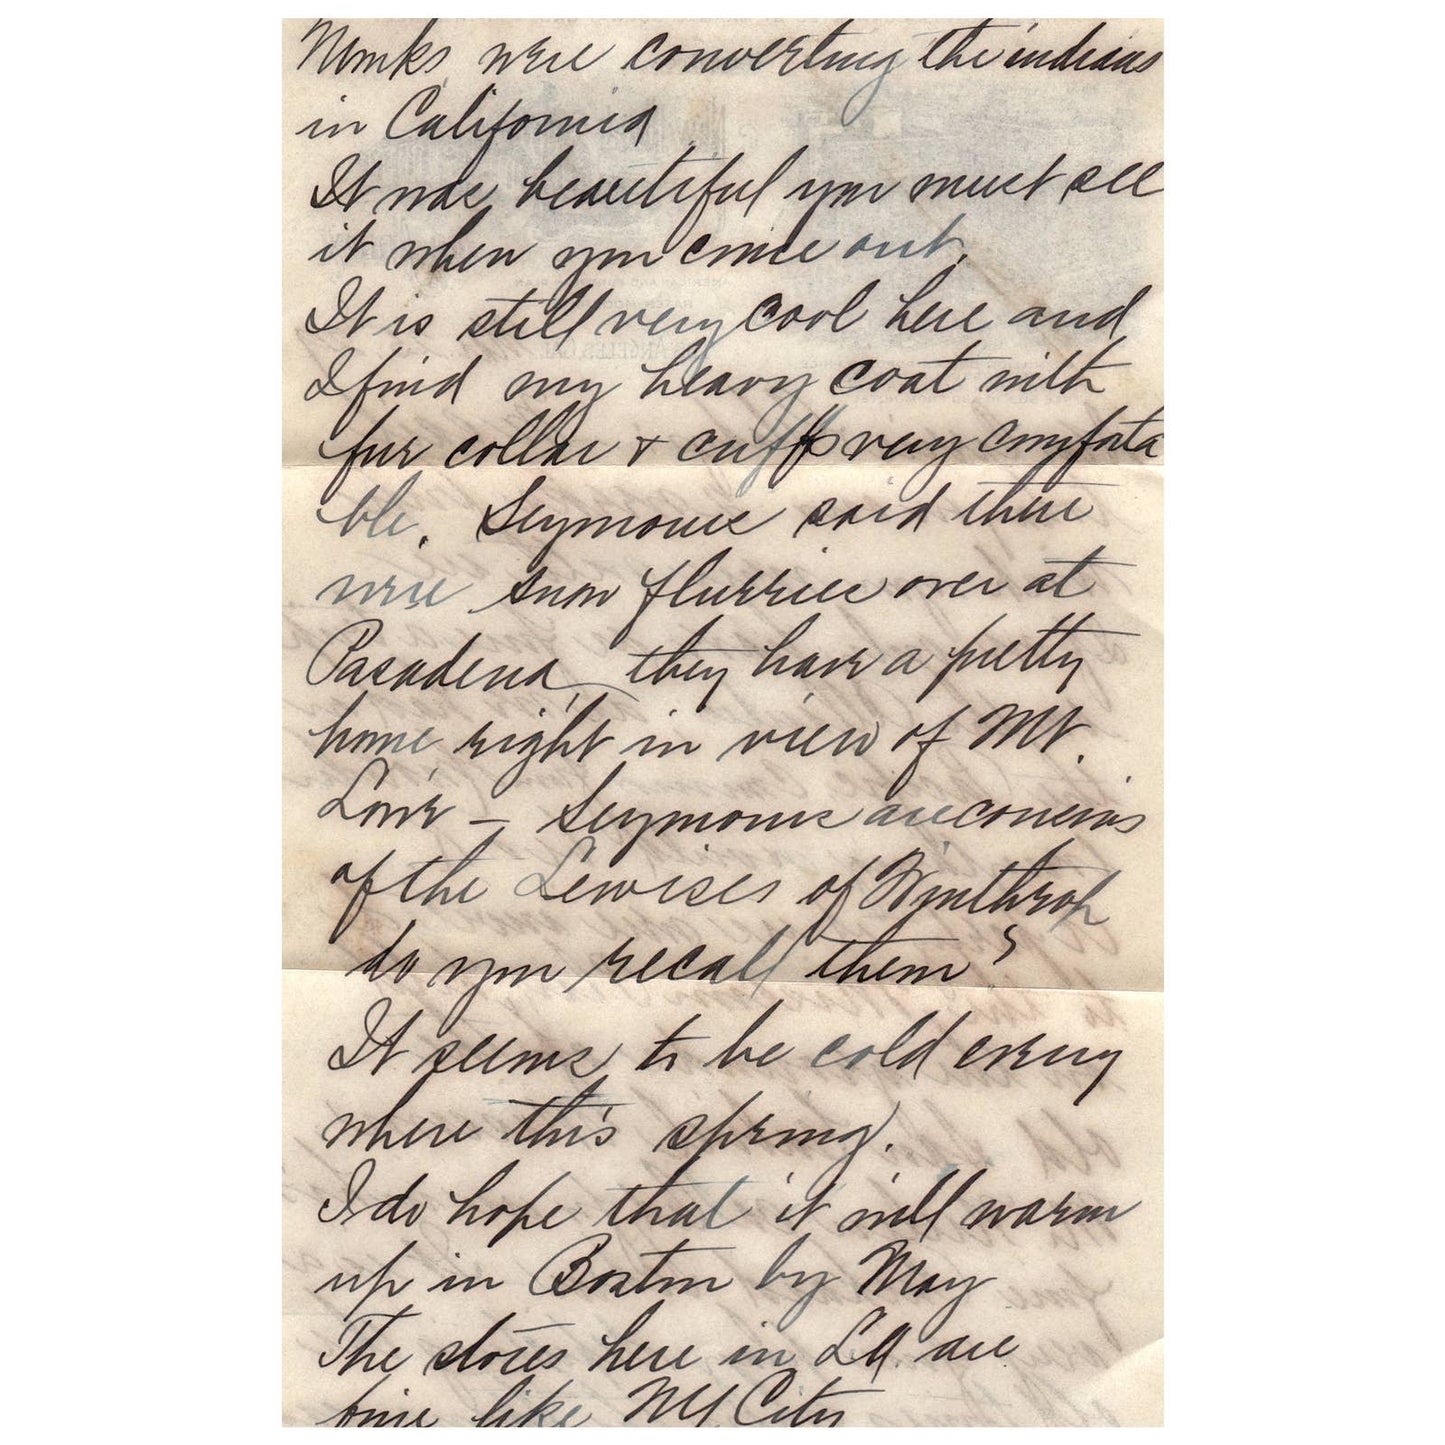 Monks were converting the indians
in California
It was beautiful you must see
it when you come out.
It is still very cool here and
I find my heavy coat with
fur collar & cuffs very comforta
ble. Seymours said there
were snow flurries over at
Pasadena, they have a pretty
home right in view of Mt.
Lowe - Seymours are cousins
of the Lewises of Winthrop
do you recall them?
It seems to be cold every
where this spring.
I do hope that it will warm
up in Boston by May
The stores here in LA are
fine like NY City